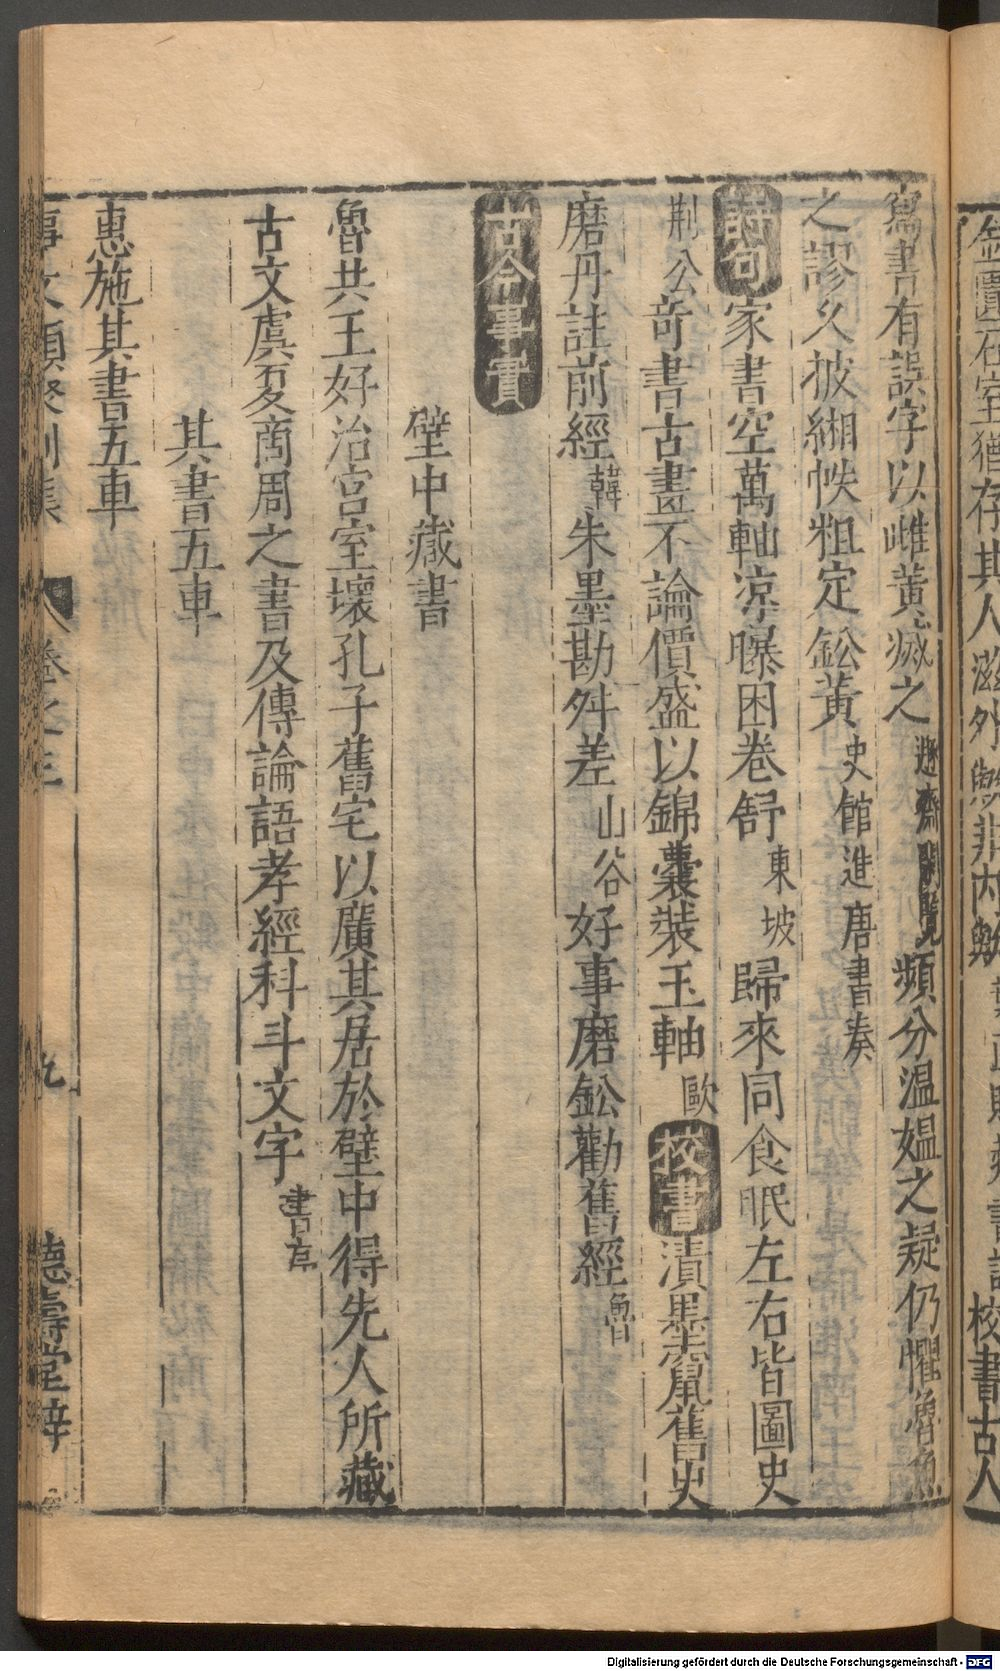 寫書有誤字以雌黄滅之遯齋閑覽頻分温媼之疑仍懼魯魚
之謬久披緗帙粗定鈆黄史館進唐書奏
詩句家書空萬軸凉曝困卷舒東坡歸來同食眠左右皆圖史
荆公奇書古畫不論價盛以錦囊裝玉軸歐校書漬墨竄舊史
磨丹註前經韓朱墨勘舛差山谷好事磨鈆勸舊經魯
古今事實
壁中藏書
魯共王好治宫室壞孔子舊宅以廣其居於壁中得先人所藏
古文虞夏商周之書及傳論語孝經科斗文字書序
其書五車
惠施其書五車
事文類聚别集 卷之三 九 德壽堂梓
校書古人
Digitalisierung gefördert durch die Deutsche Forschungsgemeinschaft - DFG